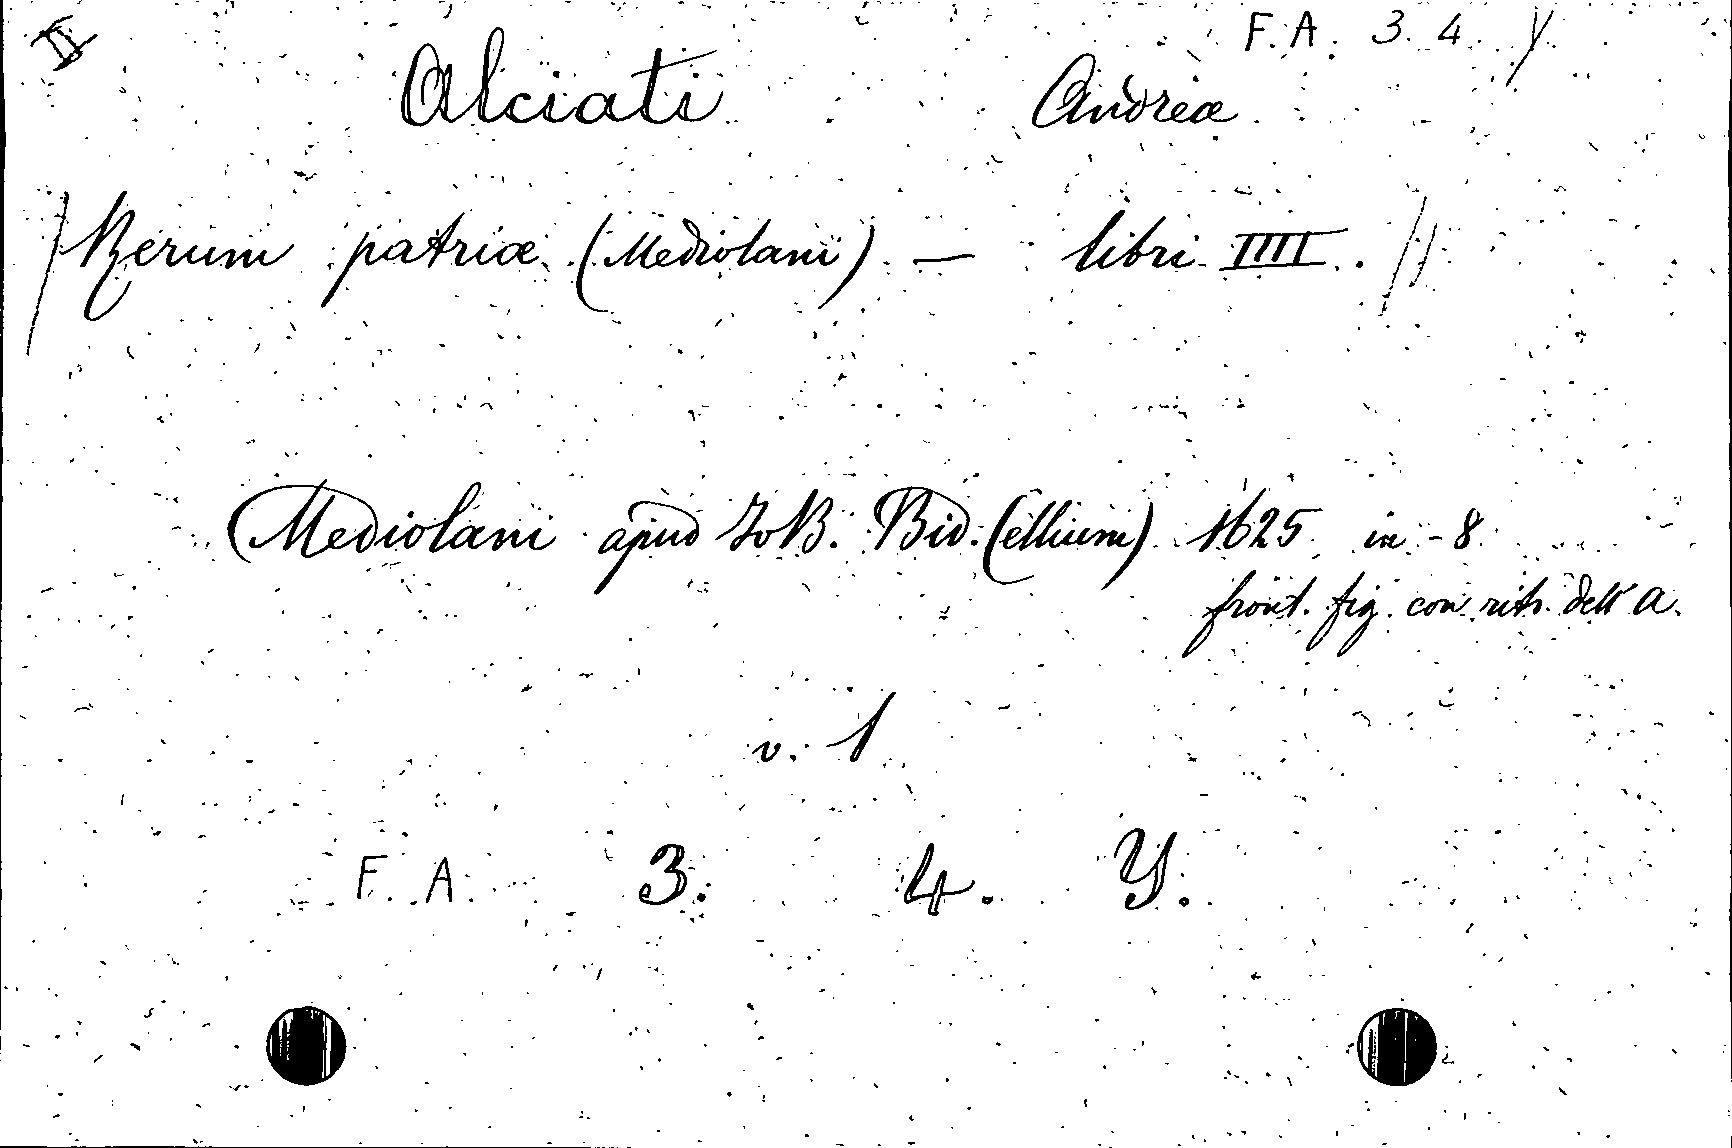 II F. A. 3. 4. Y
Alciati Andreæ
/ Rerum patriæ (Mediolani) — libri IIII. //
Mediolani apud IoB. Bid.(ellium) 1625 in-8
front. fig. con ritr. dell'A.
v. 1
F. A. 3. 4. Y.